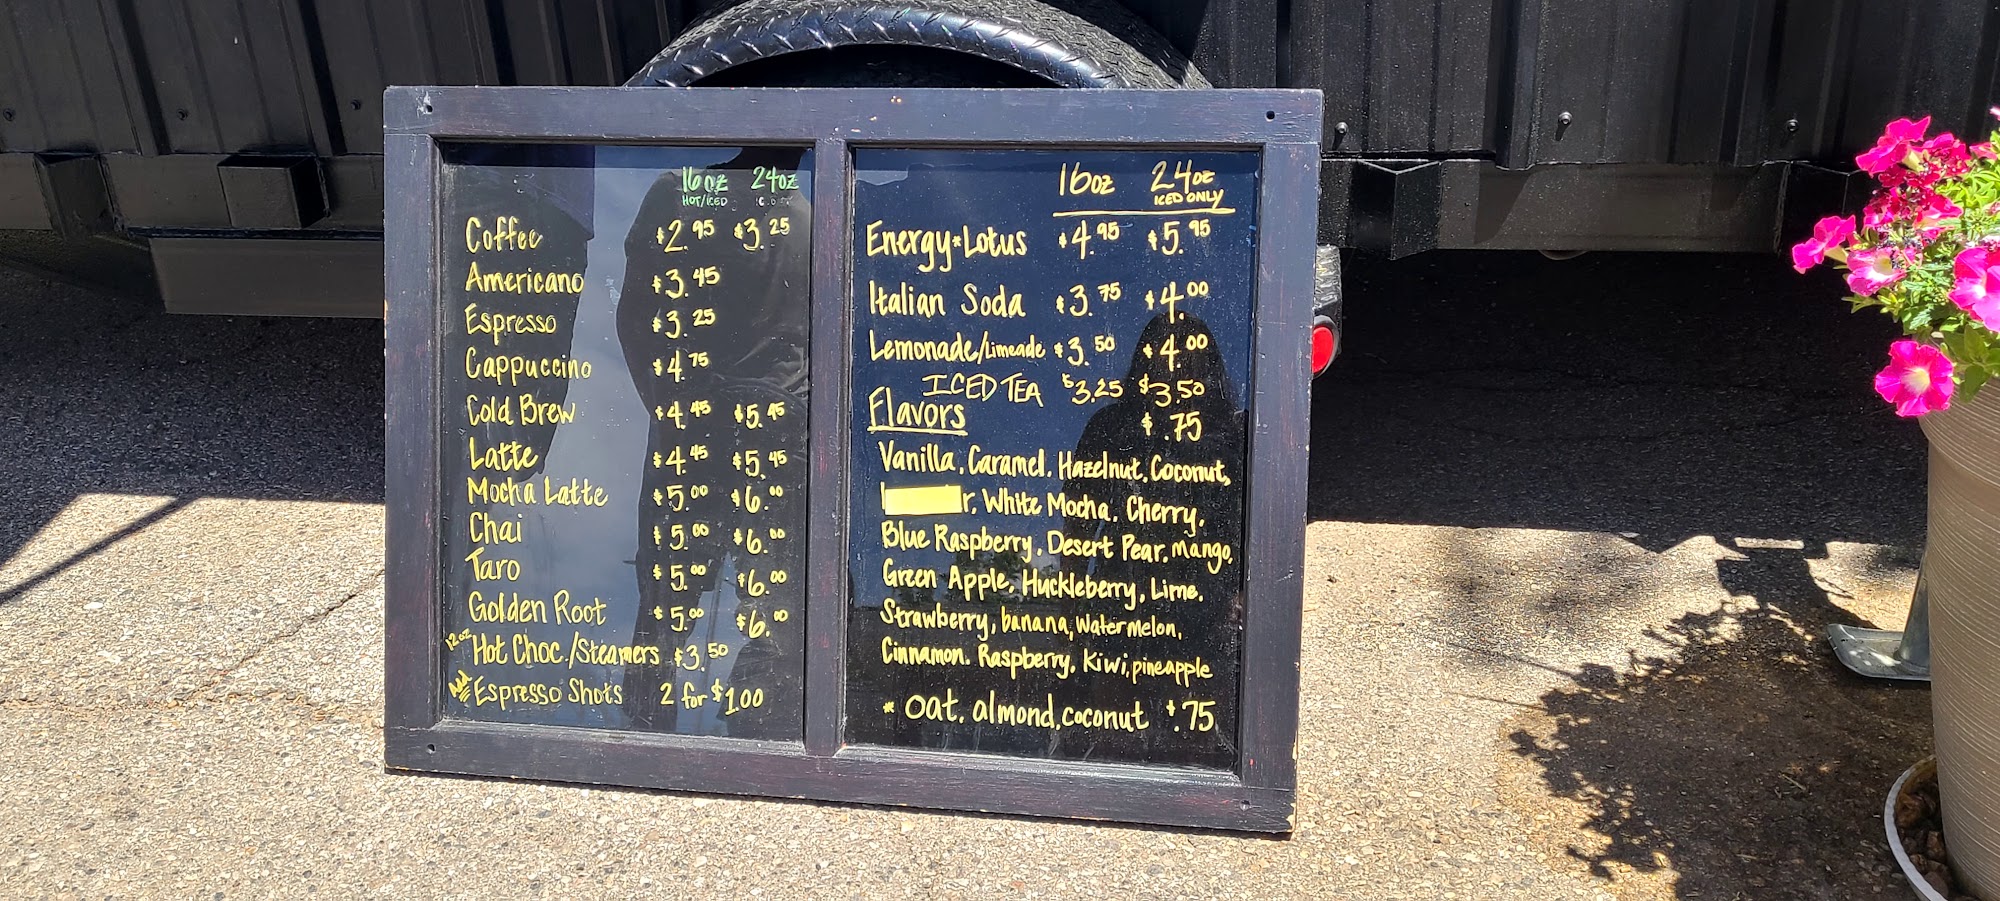 16oz 24oz
HOT/ICED
Coffee $2.95 $3.25
Americano $3.45
Espresso $3.25
Cappuccino $4.75
Cold Brew $4.45 $5.45
Latte $4.45 $5.45
Mocha Latte $5.00 $6.00
Chai $5.00 $6.00
Taro $5.00 $6.00
Golden Root $5.00 $6.00
12oz Hot Choc./Steamers $3.50
Add Espresso Shots 2 for $1.00
16oz 24oz
ICED ONLY
Energy*Lotus $4.95 $5.95
Italian Soda $3.75 $4.00
Lemonade/Limeade $3.50 $4.00
ICED TEA $3.25 $3.50
Flavors $.75
Vanilla, Caramel, Hazelnut, Coconut,
White Mocha, Cherry,
Blue Raspberry, Desert Pear, Mango,
Green Apple, Huckleberry, Lime,
Strawberry, banana, Watermelon,
Cinnamon, Raspberry, Kiwi, pineapple
* Oat, almond, coconut $.75